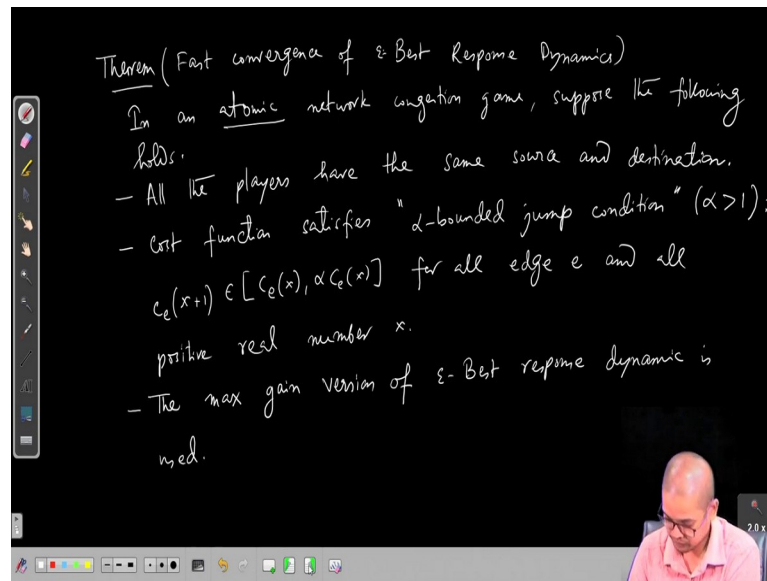 Theorem (Fast convergence of ε-Best Response Dynamics)
In an atomic network congestion game, suppose the following
holds.
- All the players have the same source and destination.
- Cost function satisfies "α-bounded jump condition" (α>1):
c_e(x+1) ∈ [c_e(x), αc_e(x)] for all edge e and all
positive real number x.
- The max gain version of ε-Best response dynamic is
used.
2.0 x